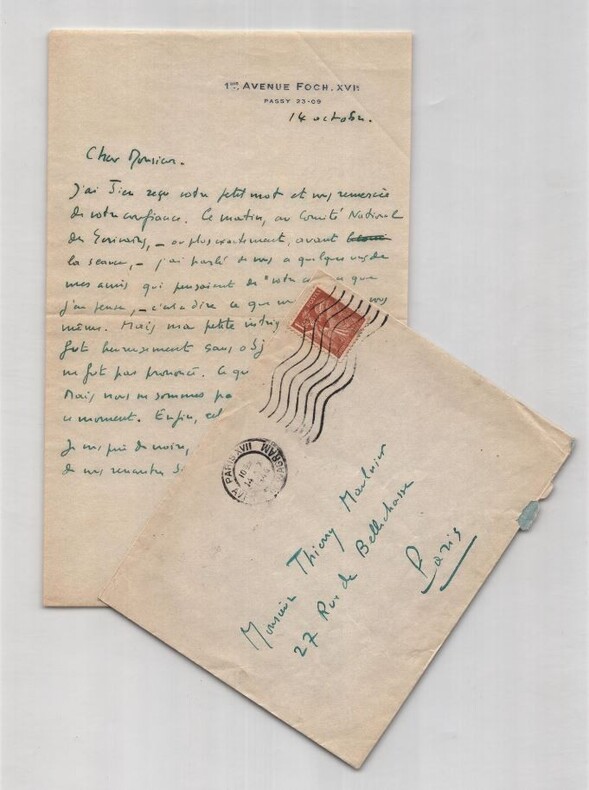 1bis, AVENUE FOCH. XVIe
PASSY 23-09
14 octobre.
Cher Monsieur.
J'ai bien reçu votre petit mot et vous remercie
de votre confiance. Ce matin, au Comité National
des Ecrivains, – ou plus exactement, avant
la séance, – j'ai parlé de vous à quelques uns de
mes amis qui pensaient de "votre ca que
j'en pense, – c'est à dire ce que vous
même. Mais ma petite
fut heureusement sans obj
ne fut pas prononcé. Ce qu
Mais nous ne sommes pa
ce moment. Enfin, cel
Je me
de vous rencontrer
PARIS XVII
WAGRAM
Monsieur Thierry Maulnier
27 Rue de Bellechasse
Paris